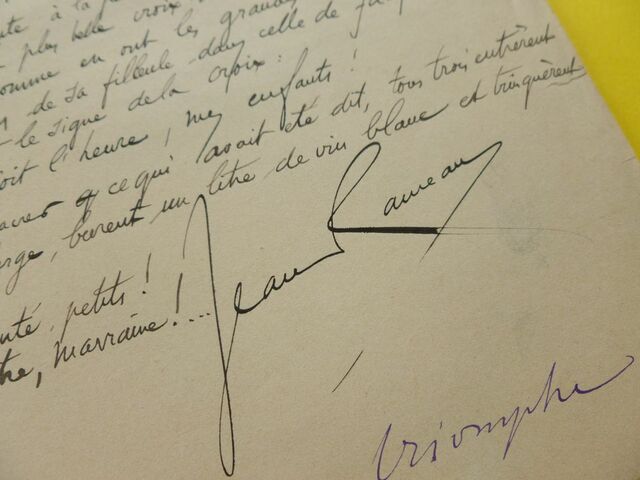 plus belle croix,
comme en ont les grandes
de sa filleule dans celle de
le signe de la croix :
soit l'heure, mes enfants !
ce qui avait été dit, tous trois entrèrent
burent un litre de vin blanc et trinquèrent
petits !
marraine !...
Jean Rameau
triomphe